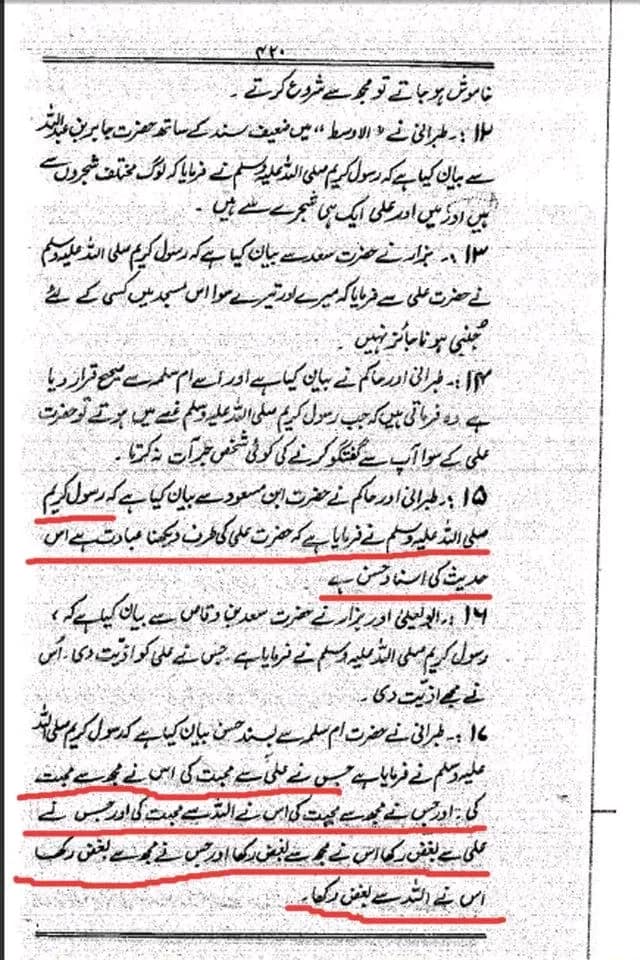 ۴۲۰
خاموش ہو جاتے تو مجھ سے شروع کرتے ۔
۱۲ :۔ طبرانی نے "الاوسط" میں ضعیف سند کے ساتھ حضرت جابر بن عبداللہ
سے بیان کیا ہے کہ رسول کریم صلی اللہ علیہ وسلم نے فرمایا کہ لوگ مختلف شجروں سے
ہیں اور میں اور علی ایک ہی شجرے سے ہیں ۔
۱۳ :۔ بزار نے حضرت سعد سے بیان کیا ہے کہ رسول کریم صلی اللہ علیہ وسلم
نے حضرت علی سے فرمایا کہ میرے اور تیرے سوا اس مسجد میں کسی کے لئے
جنبی ہونا جائز نہیں ۔
۱۴ :۔ طبرانی اور حاکم نے بیان کیا ہے اور اسے ام سلمہ سے صحیح قرار دیا
ہے وہ فرماتی ہیں کہ جب رسول کریم صلی اللہ علیہ وسلم غصے میں ہوتے تو حضرت
علی کے سوا آپ سے گفتگو کرنے کی کوئی شخص جرأت نہ کرتا ۔
۱۵ :۔ طبرانی اور حاکم نے حضرت ابن مسعود سے بیان کیا ہے کہ رسول کریم
صلی اللہ علیہ وسلم نے فرمایا ہے کہ حضرت علی کی طرف دیکھنا عبادت ہے اس
حدیث کی اسناد حسن ہے
۱۶ :۔ ابو یعلیٰ اور بزار نے حضرت سعد بن وقاص سے بیان کیا ہے کہ ،
رسول کریم صلی اللہ علیہ وسلم نے فرمایا ہے۔ جس نے علی کو اذیّت دی۔ اُس
نے مجھے اذیّت دی ۔
۱۷ :۔ طبرانی نے حضرت ام سلمہ سے بسند حسن بیان کیا ہے کہ رسول کریم صلی اللہ
علیہ وسلم نے فرمایا ہے جس نے علی سے محبت کی اس نے مجھ سے محبت
کی ۔ اور جس نے مجھ سے محبت کی اس نے اللہ سے محبت کی اور جس نے
علی سے بغض رکھا اس نے مجھ سے بغض رکھا اور جس نے مجھ سے بغض رکھا
اس نے اللہ سے بغض رکھا ۔